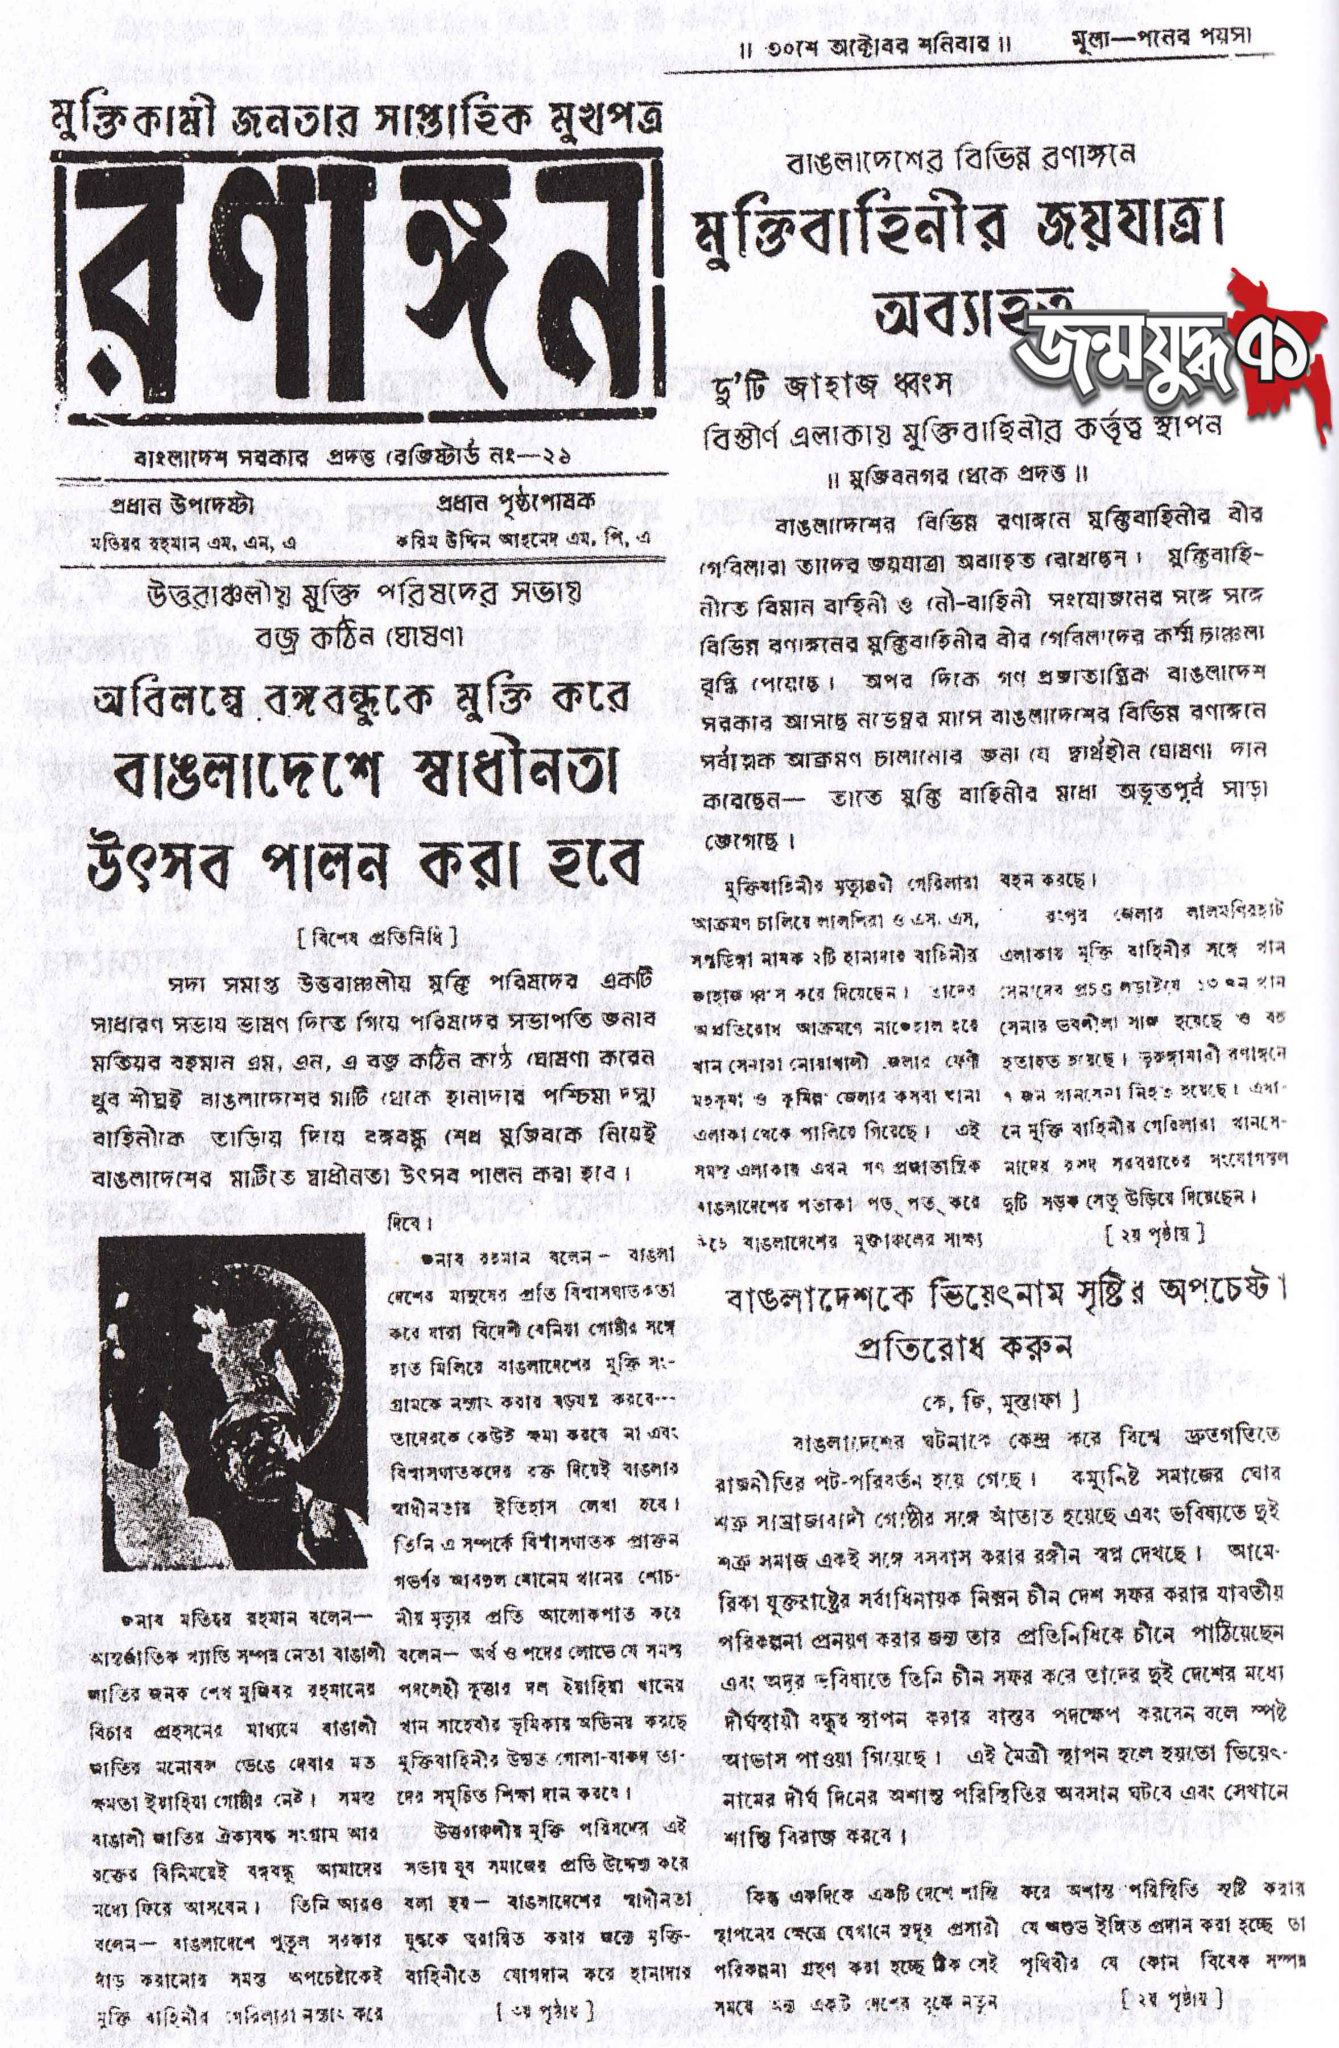 ॥ ৩০শে অক্টোবর শনিবার ॥ মূল্য—পনের পয়সা
মুক্তিকামী জনতার সাপ্তাহিক মুখপত্র
রণাঙ্গন
বাংলাদেশ সরকার প্রদত্ত রেজিষ্টার্ড নং—২১
প্রধান উপদেষ্টা
মতিয়র রহমান এম, এন, এ
প্রধান পৃষ্ঠপোষক
করিম উদ্দিন আহমেদ এম, পি, এ
উত্তরাঞ্চলীয় মুক্তি পরিষদের সভায়
বজ্র কঠিন ঘোষণা
অবিলম্বে বঙ্গবন্ধুকে মুক্তি করে
বাঙলাদেশে স্বাধীনতা
উৎসব পালন করা হবে
[ বিশেষ প্রতিনিধি ]
সদ্য সমাপ্ত উত্তরাঞ্চলীয় মুক্তি পরিষদের একটি
সাধারণ সভায় ভাষণ দিতে গিয়ে পরিষদের সভাপতি জনাব
মতিয়র রহমান এম, এন, এ বজ্র কঠিন কণ্ঠে ঘোষণা করেন
খুব শীঘ্রই বাঙলাদেশের মাটি থেকে হানাদার পশ্চিমা দস্যু
বাহিনীকে তাড়িয়ে দিয়ে বঙ্গবন্ধু শেখ মুজিবকে নিয়েই
বাঙলাদেশের মাটিতে স্বাধীনতা উৎসব পালন করা হবে।
জনাব মতিয়র রহমান বলেন—
আন্তর্জাতিক খ্যাতি সম্পন্ন নেতা বাঙালী
জাতির জনক শেখ মুজিবর রহমানের
বিচার প্রহসনের মাধ্যমে বাঙালী
জাতির মনোবল ভেঙে দেবার মত
ক্ষমতা ইয়াহিয়া গোষ্ঠীর নেই। সমস্ত
বাঙালী জাতির ঐক্যবদ্ধ সংগ্রাম আর
রক্তের বিনিময়েই বঙ্গবন্ধু আমাদের
মধ্যে ফিরে আসবেন। তিনি আরও
বলেন— বাঙলাদেশে পুতুল সরকার
দাড় করানোর সমস্ত অপচেষ্টাকেই
মুক্তি বাহিনীর গেরিলারা নস্যাৎ করে
দিবে।
জনাব রহমান বলেন— বাঙলা
দেশের মানুষের প্রতি বিশ্বাসঘাতকতা
করে যারা বিদেশী বেনিয়া গোষ্ঠীর সঙ্গে
হাত মিলিয়ে বাঙলাদেশের মুক্তি সং-
গ্রামকে নস্যাৎ করার ষড়যন্ত্র করবে---
তাদেরকে কেউই ক্ষমা করবে না এবং
বিশ্বাসঘাতকদের রক্ত দিয়েই বাঙলার
স্বাধীনতার ইতিহাস লেখা হবে।
তিনি এ সম্পর্কে বিশ্বাসঘাতক প্রাক্তন
গভর্ণর আবদুল মোনেম খানের শোচ-
নীয় মৃত্যুর প্রতি আলোকপাত করে
বলেন— অর্থ ও পদের লোভে যে সমস্ত
পদলেহী কুত্তার দল ইয়াহিয়া খানের
খান সাহেবীর ভূমিকায় অভিনয় করছে
মুক্তিবাহিনীর উদ্যত গোলা-বারুদ তা-
দের সমূচিত শিক্ষা দান করবে।
উত্তরাঞ্চলীয় মুক্তি পরিষদের এই
সভায় যুব সমাজের প্রতি উদ্দেশ্য করে
বলা হয়— বাঙলাদেশের স্বাধীনতা
যুদ্ধকে ত্বরান্বিত করার জন্যে মুক্তি-
বাহিনীতে যোগদান করে হানাদার
[ ৩য় পৃষ্ঠায় ]
বাঙলাদেশের বিভিন্ন রণাঙ্গনে
মুক্তিবাহিনীর জয়যাত্রা
অব্যাহত
জন্মযুদ্ধ ৭১
দু'টি জাহাজ ধ্বংস
বিস্তীর্ণ এলাকায় মুক্তিবাহিনীর কর্ত্তৃত্ব স্থাপন
॥ মুজিবনগর থেকে প্রদত্ত ॥
বাঙলাদেশের বিভিন্ন রণাঙ্গনে মুক্তিবাহিনীর বীর
গেরিলারা তাদের জয়যাত্রা অব্যাহত রেখেছেন। মুক্তিবাহি-
নীতে বিমান বাহিনী ও নৌ-বাহিনী সংযোজনের সঙ্গে সঙ্গে
বিভিন্ন রণাঙ্গনের মুক্তিবাহিনীর বীর গেরিলাদের কর্ম্ম চাঞ্চল্য
বৃদ্ধি পেয়েছে। অপর দিকে গণ প্রজাতান্ত্রিক বাঙলাদেশ
সরকার আসছে নভেম্বর মাসে বাঙলাদেশের বিভিন্ন রণাঙ্গনে
সর্বাত্মক আক্রমণ চালানোর জন্য যে দ্বার্থহীন ঘোষণা দান
করেছেন— তাতে মুক্তি বাহিনীর মধ্যে অভূতপূর্ব সাড়া
জেগেছে।
মুক্তিবাহিনীর মৃত্যুঞ্জয়ী গেরিলারা
আক্রমণ চালিয়ে লালশিরা ও এস, এস,
সপ্তডিঙ্গা নামক ২টি হানাদার বাহিনীর
জাহাজ ধ্বংস করে দিয়েছেন। তাদের
অপ্রতিরোধ আক্রমণে নাজেহাল হয়ে
খান সেনারা নোয়াখালী জেলার ফেণী
মহকুমা ও কুমিল্লা জেলার কসবা থানা
এলাকা থেকে পালিয়ে গিয়েছে। এই
সমস্ত এলাকায় এখন গণ প্রজাতান্ত্রিক
বাঙলাদেশের পতাকা পত্ পত্ করে
উড়ে বাঙলাদেশের মুক্তাঞ্চলের সাক্ষ্য
বহন করছে।
রংপুর জেলার লালমণিরহাট
এলাকায় মুক্তি বাহিনীর সঙ্গে খান
সেনাদের প্রচণ্ড লড়াইয়ে ১৩ জন খান
সেনার ভবলীলা সাঙ্গ হয়েছে ও বহু
হতাহত হয়েছে। ভুরুঙ্গামারী রণাঙ্গনে
৭ জন খানসেনা নিহত হয়েছে। এখা-
নে মুক্তি বাহিনীর গেরিলারা খানসে-
নাদের রসদ সরবরাহের সংযোগস্থল
দুটি সড়ক সেতু উড়িয়ে দিয়েছেন।
[ ২য় পৃষ্ঠায় ]
বাঙলাদেশকে ভিয়েৎনাম সৃষ্টির অপচেষ্টা।
প্রতিরোধ করুন
কে, জি, মুস্তাফা ]
বাঙলাদেশের ঘটনাকে কেন্দ্র করে বিশ্বে দ্রুতগতিতে
রাজনীতির পট-পরিবর্তন হয়ে গেছে। কম্যুনিষ্ট সমাজের ঘোর
শত্রু সাম্রাজ্যবাদী গোষ্ঠীর সঙ্গে আঁতাত হয়েছে এবং ভবিষ্যতে দুই
শত্রু সমাজ একই সঙ্গে বসবাস করার রঙ্গীন স্বপ্ন দেখছে। আমে-
রিকা যুক্তরাষ্ট্রের সর্বাধিনায়ক নিক্সন চীন দেশ সফর করার যাবতীয়
পরিকল্পনা প্রনয়ণ করার জন্য তার প্রতিনিধিকে চীনে পাঠিয়েছেন
এবং অদূর ভবিষ্যতে তিনি চীন সফর করে তাদের দুই দেশের মধ্যে
দীর্ঘস্থায়ী বন্ধুত্ব স্থাপন করার বাস্তব পদক্ষেপ করবেন বলে স্পষ্ট
আভাস পাওয়া গিয়েছে। এই মৈত্রী স্থাপন হলে হয়তো ভিয়েৎ-
নামের দীর্ঘ দিনের অশান্ত পরিস্থিতির অবসান ঘটবে এবং সেখানে
শান্তি বিরাজ করবে।
কিন্তু একদিকে একটি দেশে শান্তি
স্থাপনের ক্ষেত্রে যেখানে সুদূর প্রসারী
পরিকল্পনা গ্রহণ করা হচ্ছে ঠিক সেই
সময়ে অন্য একটি দেশের বুকে নতুন
করে অশান্ত পরিস্থিতি সৃষ্টি করার
যে অশুভ ইঙ্গিত প্রদান করা হচ্ছে তা
পৃথিবীর যে কোন বিবেক সম্পন্ন
[ ২য় পৃষ্ঠায় ]